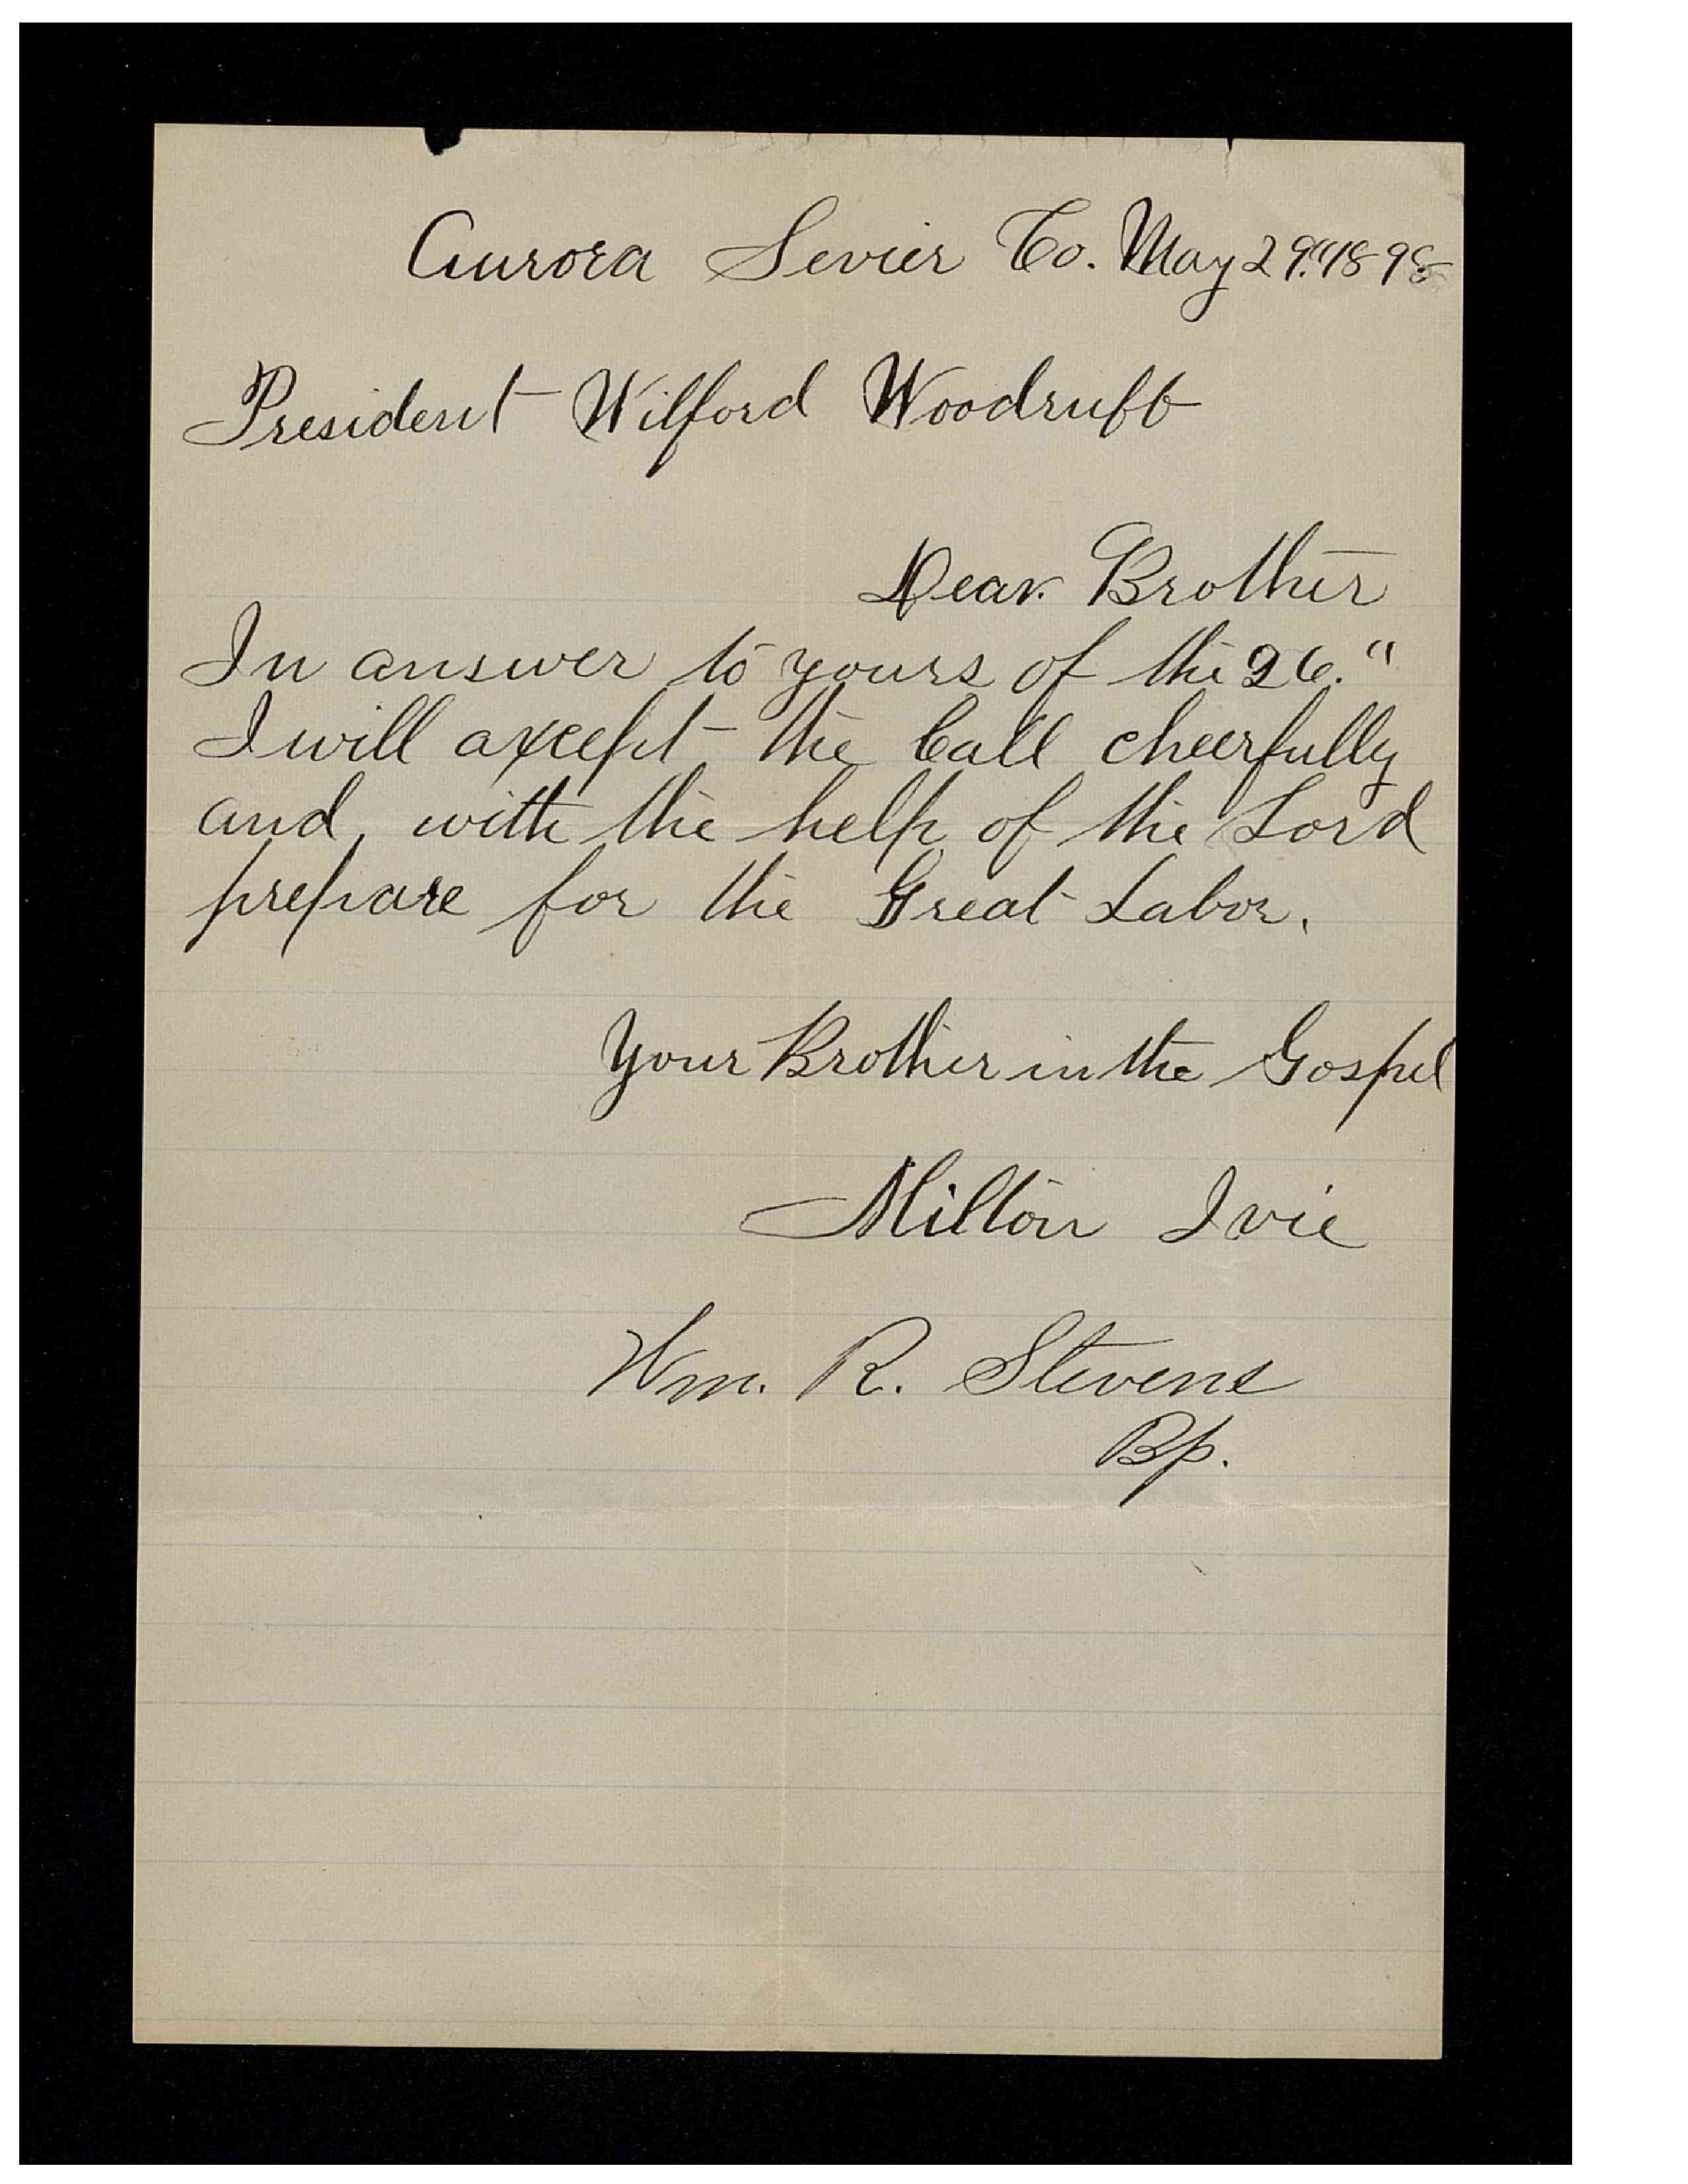 Aurora Sevier Co. May 29." 1898
President Wilford Woodruff
Dear Brother
In answer to yours of the 26."
I will axcept the Call cheerfully
and, with the help of the Lord
prepare for the Great Labor.
Your Brother in the Gospel
Milton Ivie
Wm. R. Stevens
Bp.